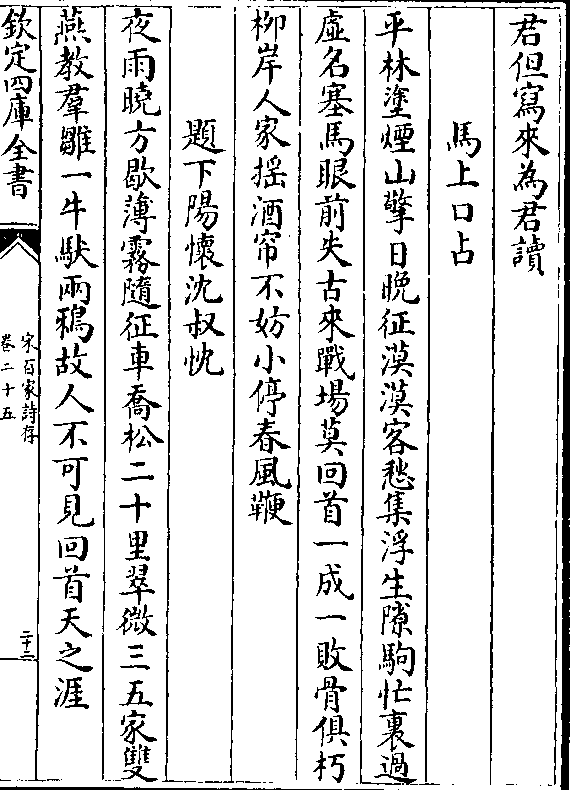 君但寫來為君讀
馬上口占
平林塗煙山擎日晚征漠漠客愁集浮生隙駒忙裏過
虛名塞馬眼前失古來戰場莫回首一成一敗骨俱朽
柳岸人家揺酒帘不妨小停春風鞭
題下陽懷沈叔忱
夜雨曉方歇薄霧隨征車喬松二十里翠微三五家雙
燕教羣雛一牛馱兩鵶故人不可見回首天之涯
欽定四庫全書
宋百家詩存
卷二十五
二十二